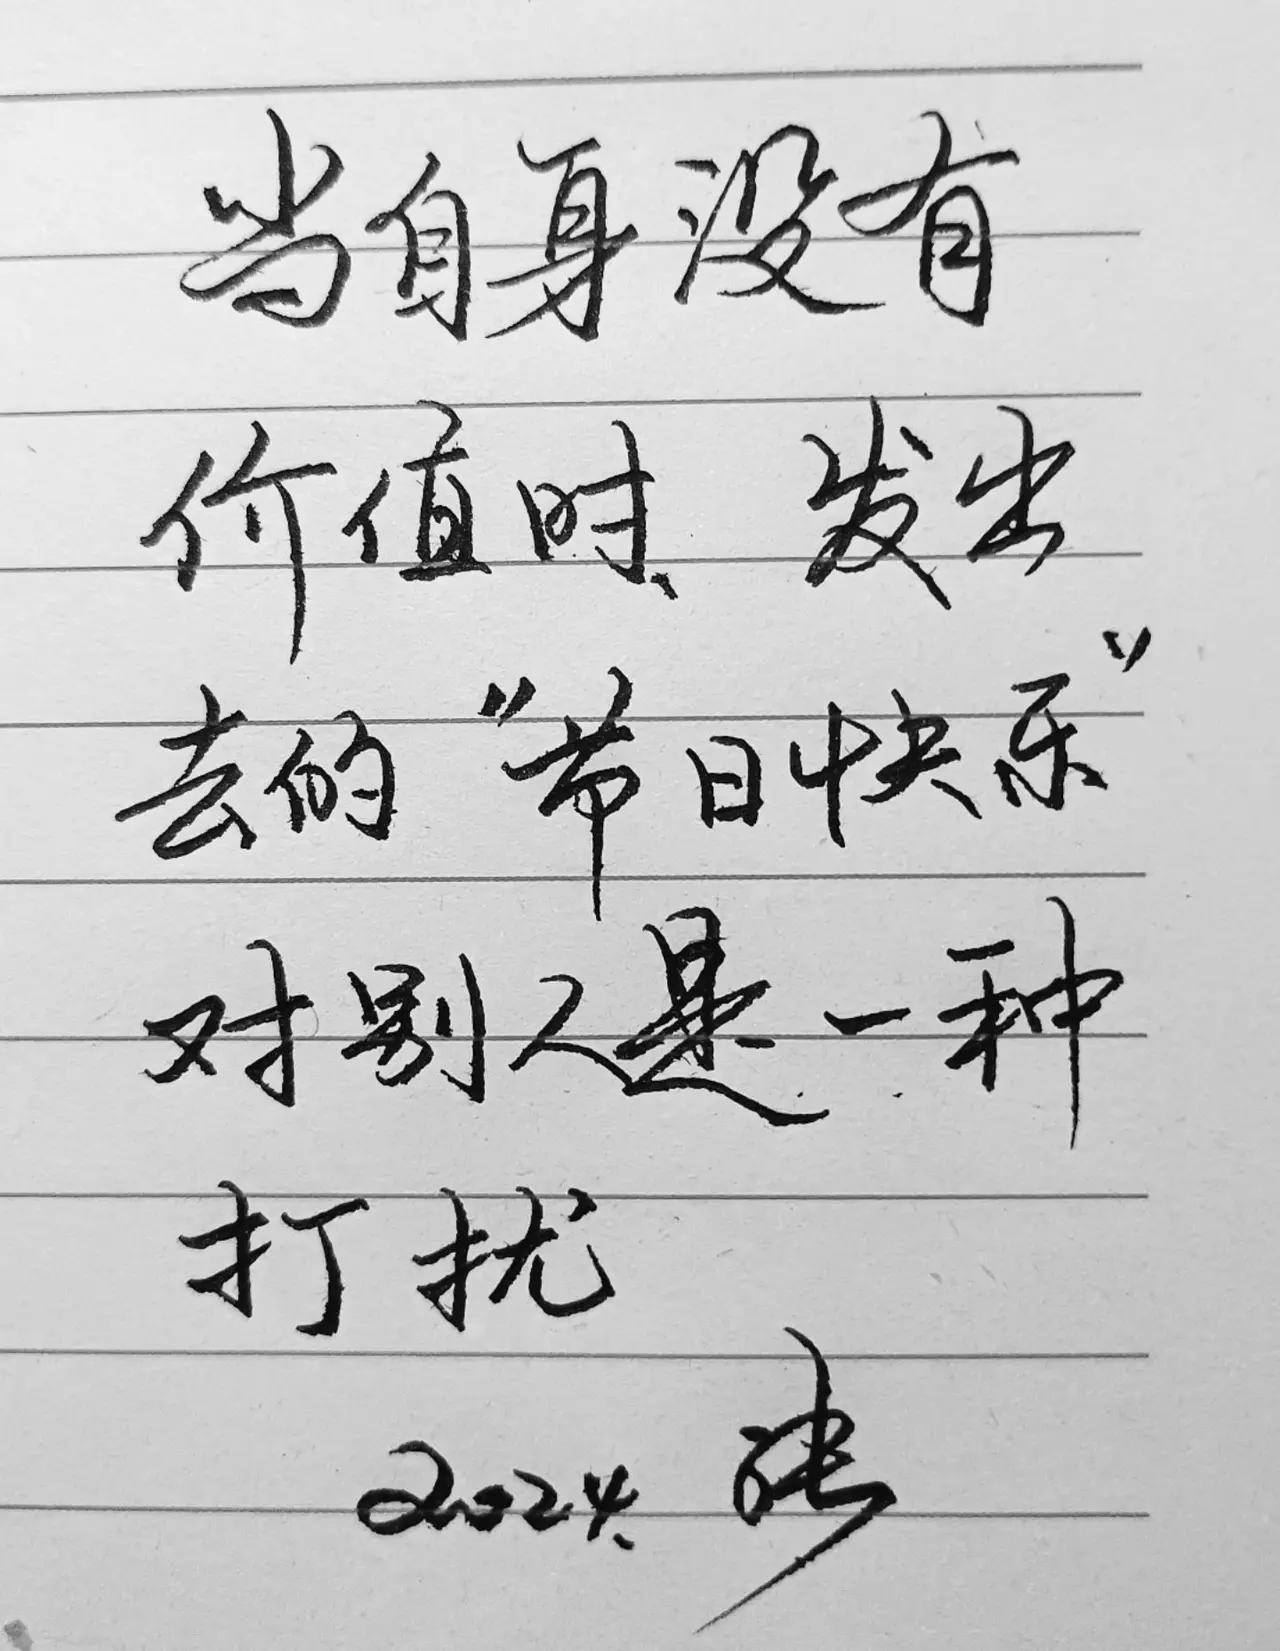 当自身没有
价值时、发出
去的“节日快乐”
对别人是一种
打扰
2024.